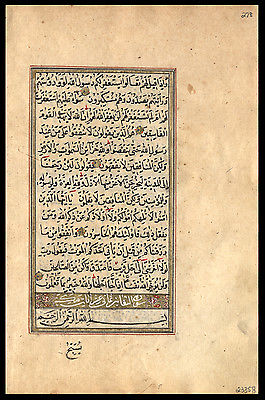 وَاِذَا قِيلَ لَهُمْ تَعَالَوْا يَسْتَغْفِرْ لَكُمْ رَسُولُ اللهِ لَوَّوْا رُؤُسَهُمْ
وَرَاَيْتَهُمْ يَصُدُّونَ وَهُمْ مُسْتَكْبِرُونَ سَوَاءٌ عَلَيْهِمْ اَسْتَغْفَرْتَ
لَهُمْ اَمْ لَمْ تَسْتَغْفِرْ لَهُمْ لَنْ يَغْفِرَ اللهُ لَهُمْ اِنَّ اللهَ لَا يَهْدِي الْقَوْمَ
الْفَاسِقِينَ هُمُ الَّذِينَ يَقُولُونَ لَا تُنْفِقُوا عَلٰى مَنْ عِنْدَ رَسُولِ
اللهِ حَتّٰى يَنْفَضُّوا وَلِلّٰهِ خَزَائِنُ السَّمٰوَاتِ وَالْاَرْضِ
وَلٰكِنَّ الْمُنَافِقِينَ لَا يَفْقَهُونَ يَقُولُونَ لَئِنْ رَجَعْنَا
اِلَى الْمَدِينَةِ لَيُخْرِجَنَّ الْاَعَزُّ مِنْهَا الْاَذَلَّ وَلِلّٰهِ الْعِزَّةُ وَلِرَسُولِهِ
وَلِلْمُؤْمِنِينَ وَلٰكِنَّ الْمُنَافِقِينَ لَا يَعْلَمُونَ يَا اَيُّهَا الَّذِينَ
اٰمَنُوا لَا تُلْهِكُمْ اَمْوَالُكُمْ وَلَا اَوْلَادُكُمْ عَنْ ذِكْرِ اللهِ
وَمَنْ يَفْعَلْ ذٰلِكَ فَاُولٰئِكَ هُمُ الْخَاسِرُونَ وَاَنْفِقُوا مِنْ مَا
رَزَقْنَاكُمْ مِنْ قَبْلِ اَنْ يَأْتِيَ اَحَدَكُمُ الْمَوْتُ فَيَقُولَ رَبِّ
لَوْلَا اَخَّرْتَنِي اِلٰى اَجَلٍ قَرِيبٍ فَاَصَّدَّقَ وَاَكُنْ مِنَ الصَّالِحِينَ
وَلَنْ يُؤَخِّرَ اللهُ نَفْسًا اِذَا جَاءَ اَجَلُهَا وَاللهُ خَبِيرٌ بِمَا تَعْمَلُونَ
سورة التغابن
بِسْمِ اللهِ الرَّحْمٰنِ الرَّحِيمِ
يُسَبِّحُ
23358